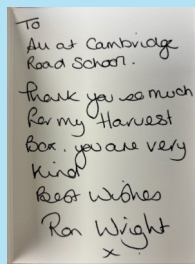 To
All at Cambridge
Road School.
Thank you so much
for my Harvest
Box. you are very
Kind
Best Wishes
Ron Wright
x